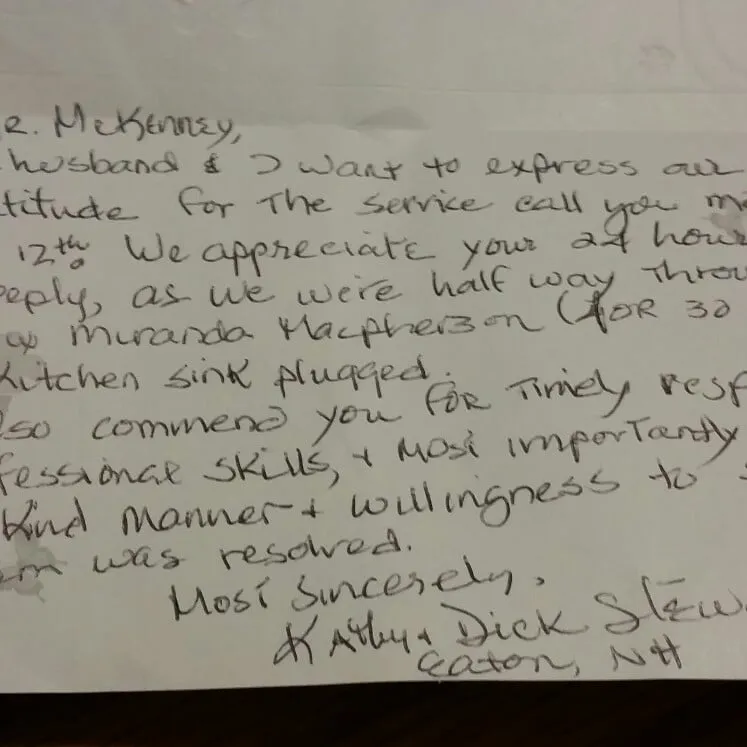 R. McKenney,
husband & I want to express our
titude for the service call you m
12th. We appreciate your 24 hour
eeply, as we were half way throu
Muranda Macpherson (for 30
Kitchen sink plugged.
so commend you for timely resp
fessional skills, + most importantly
kind manner + willingness to s
em was resolved.
Most sincerely,
Kathy + Dick Stew
Eaton, NH